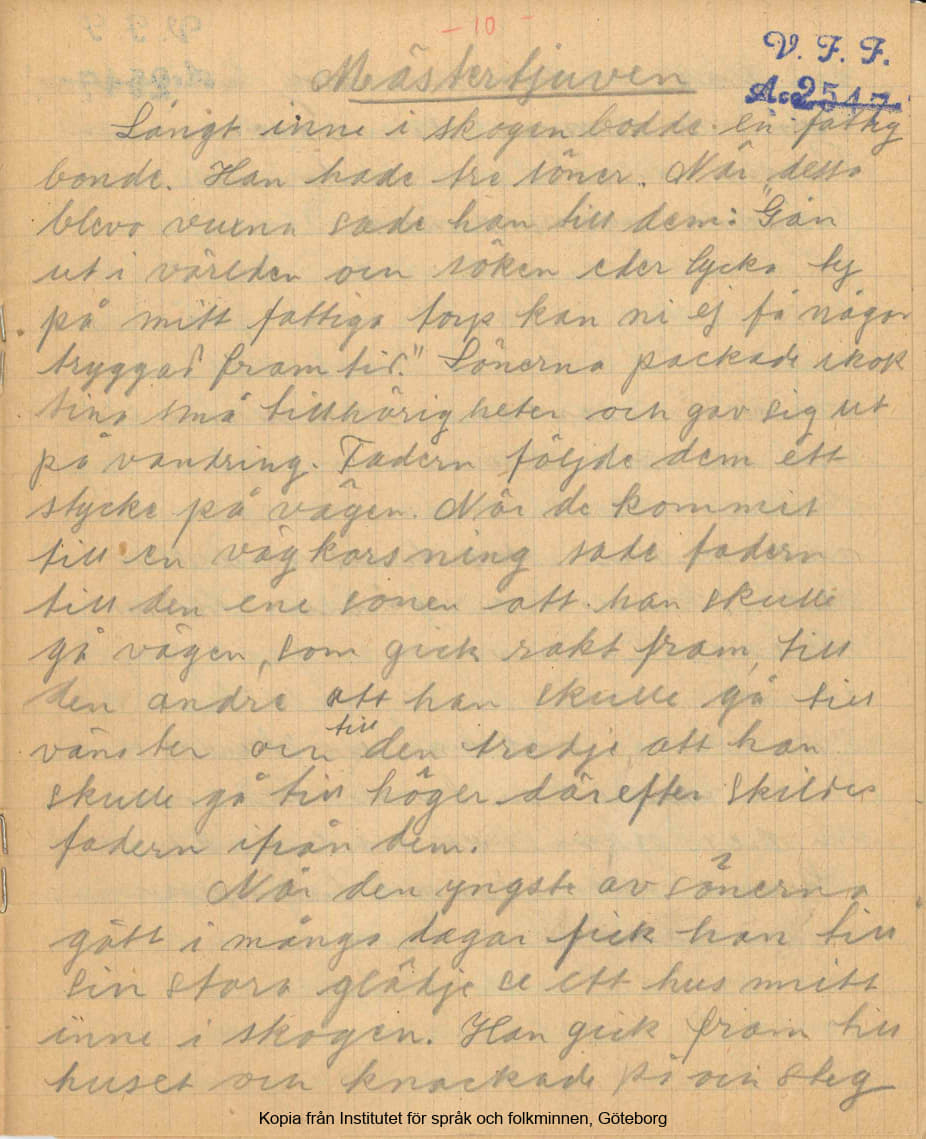 - 10 -
V. F. F.
Acc 2547
Mästertjuven
Långt inne i skogen bodde en fattig
bonde. Han hade tre söner. När dessa
blevo vuxna sade han till dem: "Gån
ut i världen och söken eder lycka ty
på mitt fattiga torp kan ni ej få någon
tryggad framtid." Sönerna packade ihop
sina små tillhörigheter och gav sig ut
på vandring. Fadern följde dem ett
stycke på vägen. När de kommit
till en vägkorsning sade fadern
till den ene sonen att han skulle
gå vägen, som gick rakt fram, till
den andre att han skulle gå till
vänster och till den tredje att han
skulle gå till höger därefter skildes
fadern ifrån dem.
När den yngste av sönerna
gått i många dagar fick han till
sin stora glädje se ett hus mitt
inne i skogen. Han gick fram till
huset och knackade på och steg
Kopia från Institutet för språk och folkminnen, Göteborg